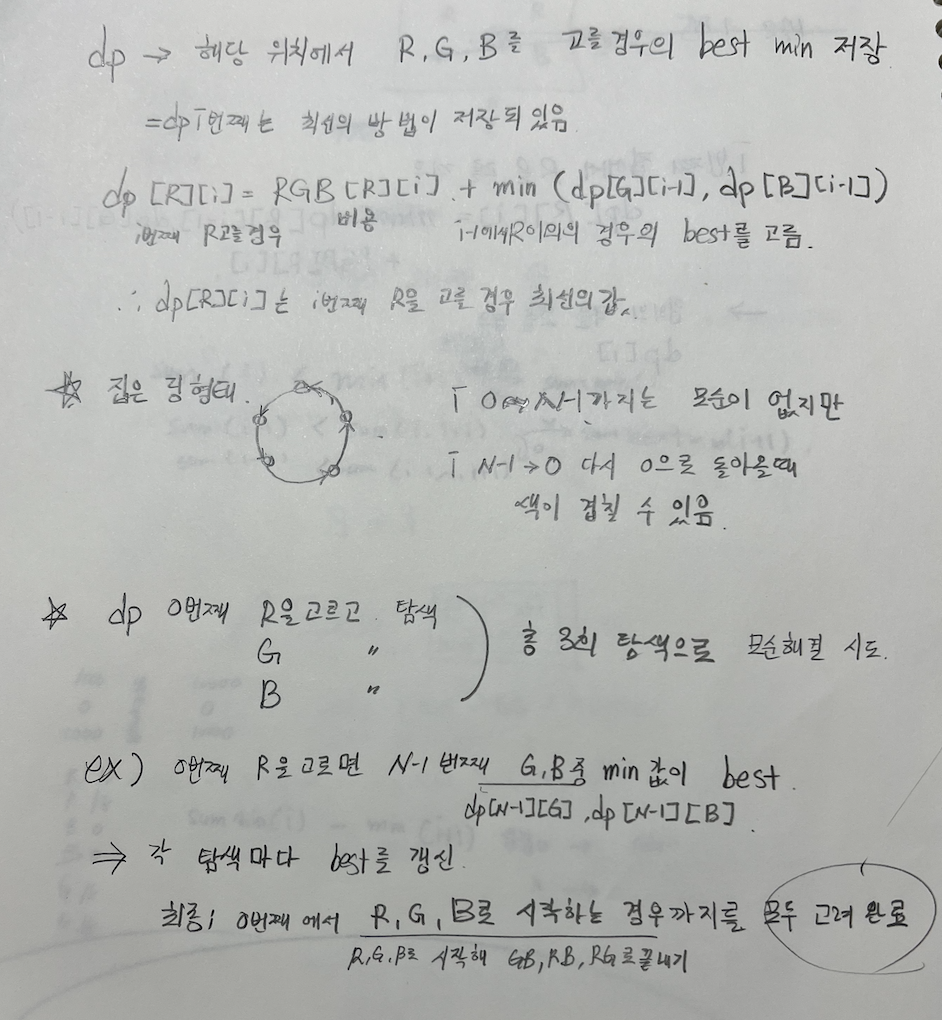 dp → 해당 위치에서 R, G, B를 고를경우의 best min 저장
= dp i번째는 최선의 방법이 저장되 있음
dp [R][i] = RGB [R][i] + min (dp[G][i-1], dp[B][i-1])
i번째 R고를경우 비용 i-1에서R이외의 경우의 best를 고름.
∴ dp[R][i]는 i번째 R을 고를 경우 최선의값.
☆ 집은 링형태.
i 0 N-1까지는 모순이 없지만
i N-1 → 0 다시 0으로 돌아올때
색이 겹칠 수 있음.
☆ dp 0번째 R을고르고 탐색
G "
B "
총 3회 탐색으로 모순해결 시도.
ex) 0번째 R을고르면 N-1 번째 G,B중 min값이 best.
dp[N-1][G], dp[N-1][B]
⇒ 각 탐색마다 best를 갱신.
최종; 0번째에서 R, G, B로 시작하는 경우까지를 모두 고려 완료
R,G,B로 시작해 GB, RB, RG로끝내기